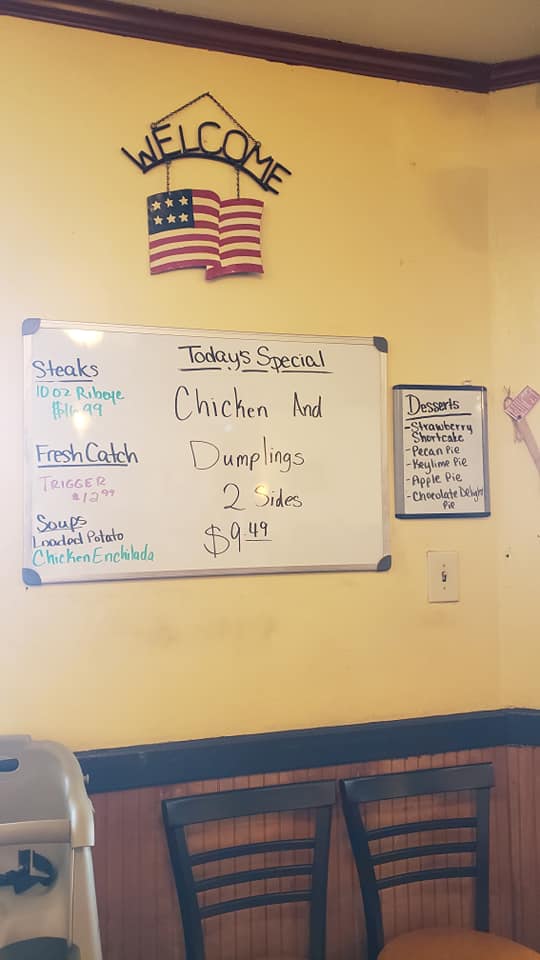 WELCOME
Today's Special
Chicken And
Dumplings
2 Sides
$9.49
Steaks
10 oz Ribeye
$16.99
Fresh Catch
TRIGGER
$12.99
Soups
Loaded Potato
Chicken Enchilada
Desserts
-Strawberry
Shortcake
-Pecan Pie
-Keylime Pie
-Apple Pie
-Chocolate Delight
Pie